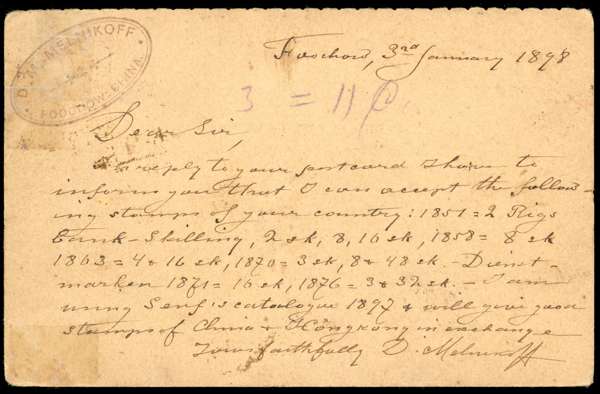 D. M. MELNIKOFF
FOOCHOW-CHINA.
Foochow, 3rd January 1898
3 = 11
Dear Sir,
In reply to your postcard I have to
inform you that I can accept the follow-
ing stamps of your country: 1851 = 2 Rigs
bank-Skilling, 2 sk, 8, 16 sk, 1858 = 8 sk
1863 = 4 & 16 sk, 1870 = 3 sk, 8 & 48 sk. - Dienst-
marken 1871 = 16 sk, 1876 = 3 & 32 sk. - I am
using Senf's catalogue 1897 & will give good
stamps of China & Hongkong in exchange
Yours faithfully D. Melnikoff